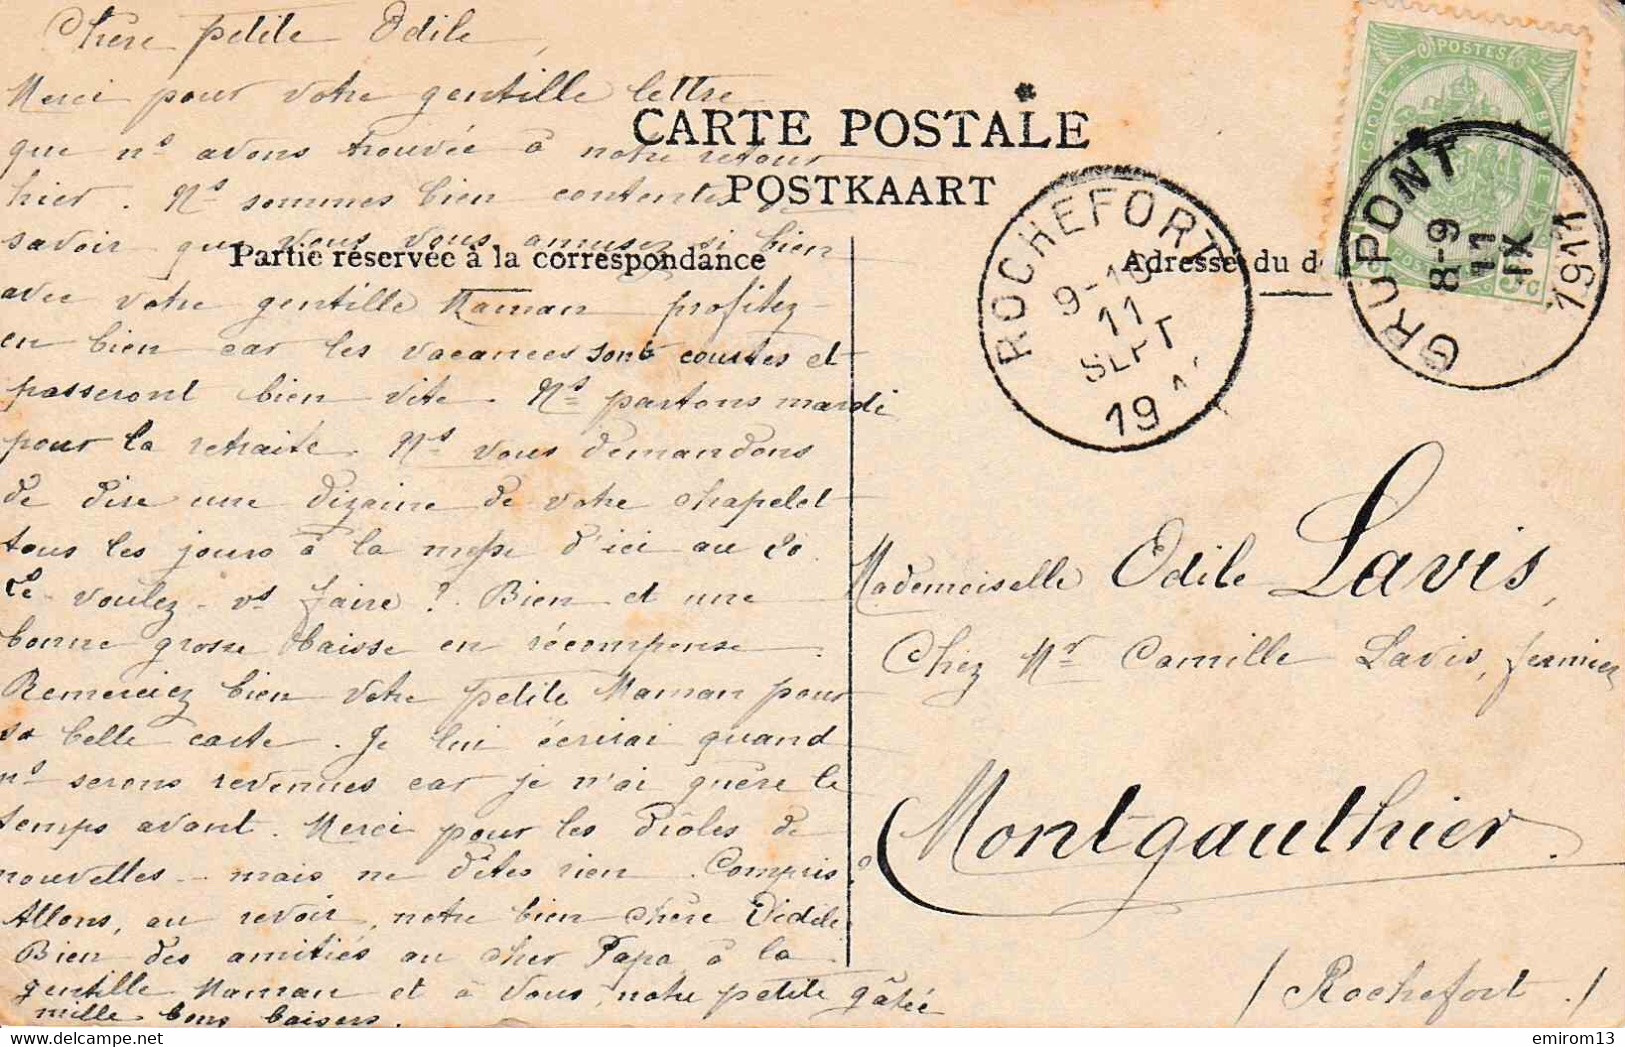 Chère petite Odile,
Merci pour votre gentille lettre
que ns avons trouvée à notre retour
hier. Ns sommes bien contentes de
savoir que vous vous amusez si bien
avec votre gentille Maman profitez-
en bien car les vacances sont courtes et
passeront bien vite. Ns partons mardi
pour la retraite. Ns vous demandons
de dire une dizaine de votre chapelet
tous les jours à la messe d'ici au 20.
Le voulez-vs faire? Bien et une
bonne grosse baisse en récompense.
Remerciez bien votre petite Maman pour
sa belle carte. Je lui écrirai quand
ns serons revenues car je n'ai guère le
temps avant. Merci pour les drôles de
nouvelles - mais ne dites rien. Compris?
Allons, au revoir, notre bien chère Didile.
Bien des amitiés au cher Papa, à la
gentille Maman et à Vous, notre petite gâtée
mille bons baisers.
CARTE POSTALE
POSTKAART
Partie réservée à la correspondance
Adresse du d
POSTES
BELGIQUE
BELGIE
ROCHEFORT
9-10
11
SEPT
19
GRUPONT
8-9
11
IX
1914
Mademoiselle Odile Lavis,
Chez Mr Camille Lavis, fermier
Montgauthier.
(Rochefort.)
delcampe.net
emirom13